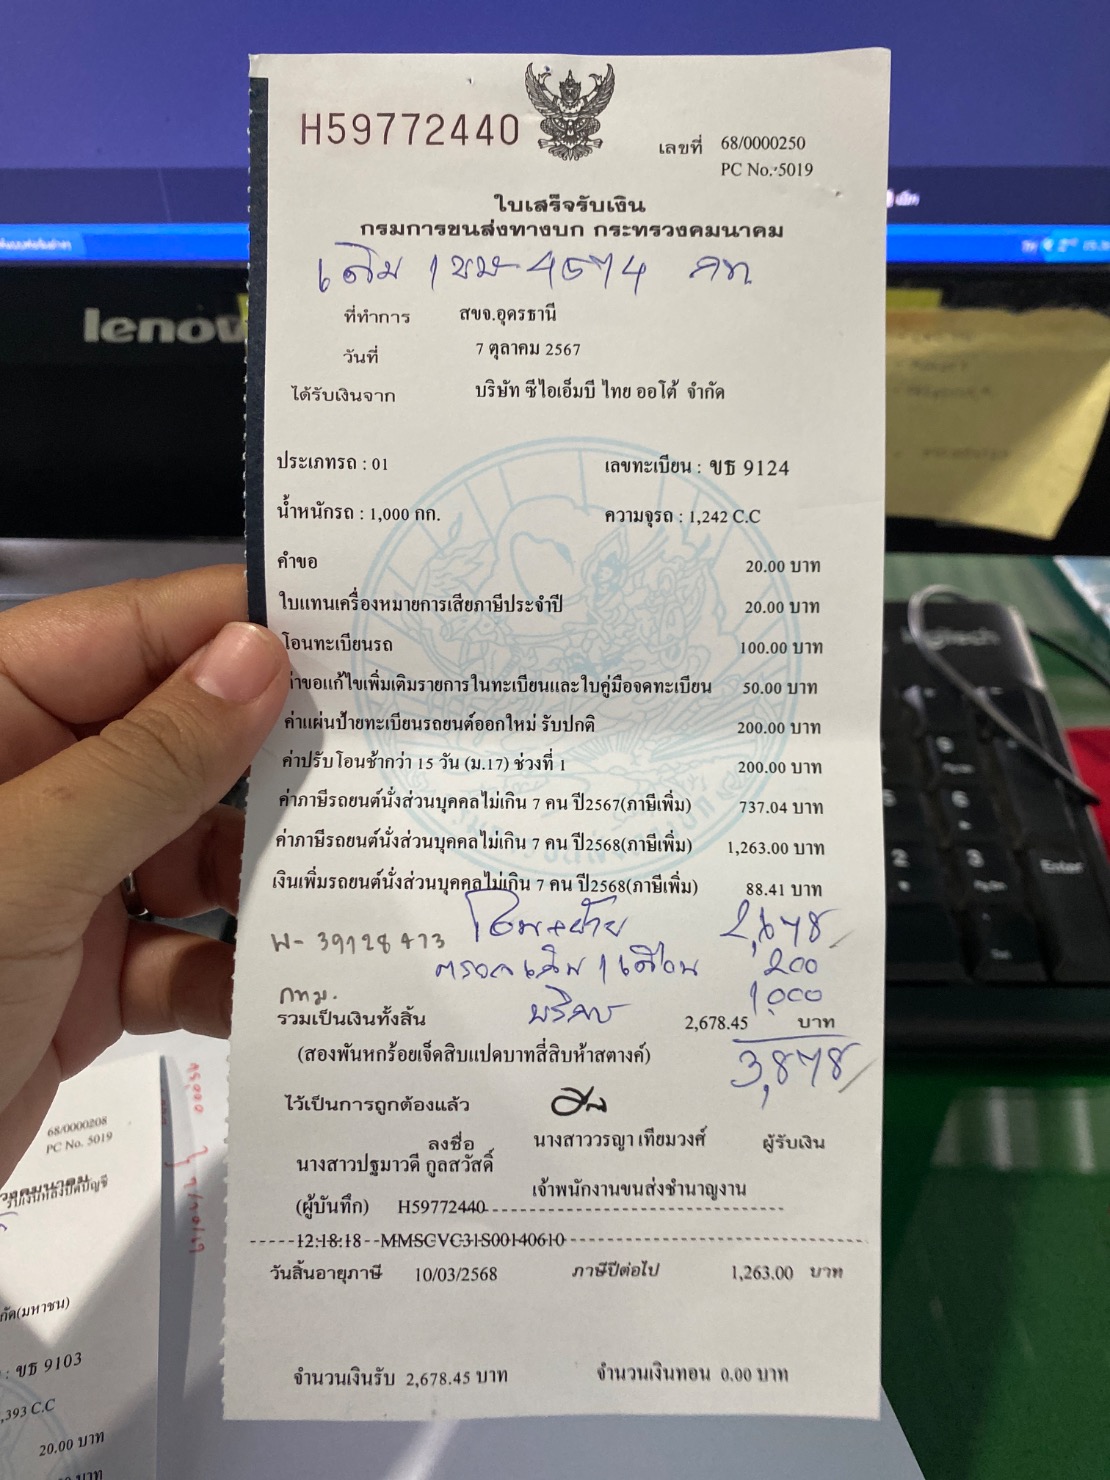 H59772440
เลขที่ 68/0000250
PC No. 5019
ใบเสร็จรับเงิน
กรมการขนส่งทางบก กระทรวงคมนาคม
เดิม 1ขษ 4574 กท
lenovo
ที่ทำการ สขจ.อุดรธานี
วันที่ 7 ตุลาคม 2567
ได้รับเงินจาก บริษัท ซีไอเอ็มบี ไทย ออโต้ จำกัด
ประเภทรถ : 01 เลขทะเบียน : ขธ 9124
น้ำหนักรถ : 1,000 กก. ความจุรถ : 1,242 C.C
คำขอ 20.00 บาท
ใบแทนเครื่องหมายการเสียภาษีประจำปี 20.00 บาท
โอนทะเบียนรถ 100.00 บาท
ค่าขอแก้ไขเพิ่มเติมรายการในทะเบียนและใบคู่มือจดทะเบียน 50.00 บาท
ค่าแผ่นป้ายทะเบียนรถยนต์ออกใหม่ รับปกติ 200.00 บาท
ค่าปรับโอนช้ากว่า 15 วัน (ม.17) ช่วงที่ 1 200.00 บาท
ค่าภาษีรถยนต์นั่งส่วนบุคคลไม่เกิน 7 คน ปี2567(ภาษีเพิ่ม) 737.04 บาท
ค่าภาษีรถยนต์นั่งส่วนบุคคลไม่เกิน 7 คน ปี2568(ภาษีเพิ่ม) 1,263.00 บาท
เงินเพิ่มรถยนต์นั่งส่วนบุคคลไม่เกิน 7 คน ปี2568(ภาษีเพิ่ม) 88.41 บาท
โอน+ย้าย 2,678
พ- 39128473
ตรวจเล่ม 1 เดือน 200
กทม. บริการ 1,000
รวมเป็นเงินทั้งสิ้น 2,678.45 บาท
(สองพันหกร้อยเจ็ดสิบแปดบาทสี่สิบห้าสตางค์) 3,878
ไว้เป็นการถูกต้องแล้ว
ลงชื่อ นางสาววรญา เทียมวงศ์ ผู้รับเงิน
นางสาวปฐมาวดี กูลสวัสดิ์
เจ้าพนักงานขนส่งชำนาญงาน
(ผู้บันทึก) H59772440
12:18:18 MMSCVC31S00140610
วันสิ้นอายุภาษี 10/03/2568 ภาษีปีต่อไป 1,263.00 บาท
จำนวนเงินรับ 2,678.45 บาท จำนวนเงินทอน 0.00 บาท
68/0000208
PC No. 5019
กัด(มหาชน)
: ขธ 9103
,393 C.C
20.00 บาท
Logitech
Enter